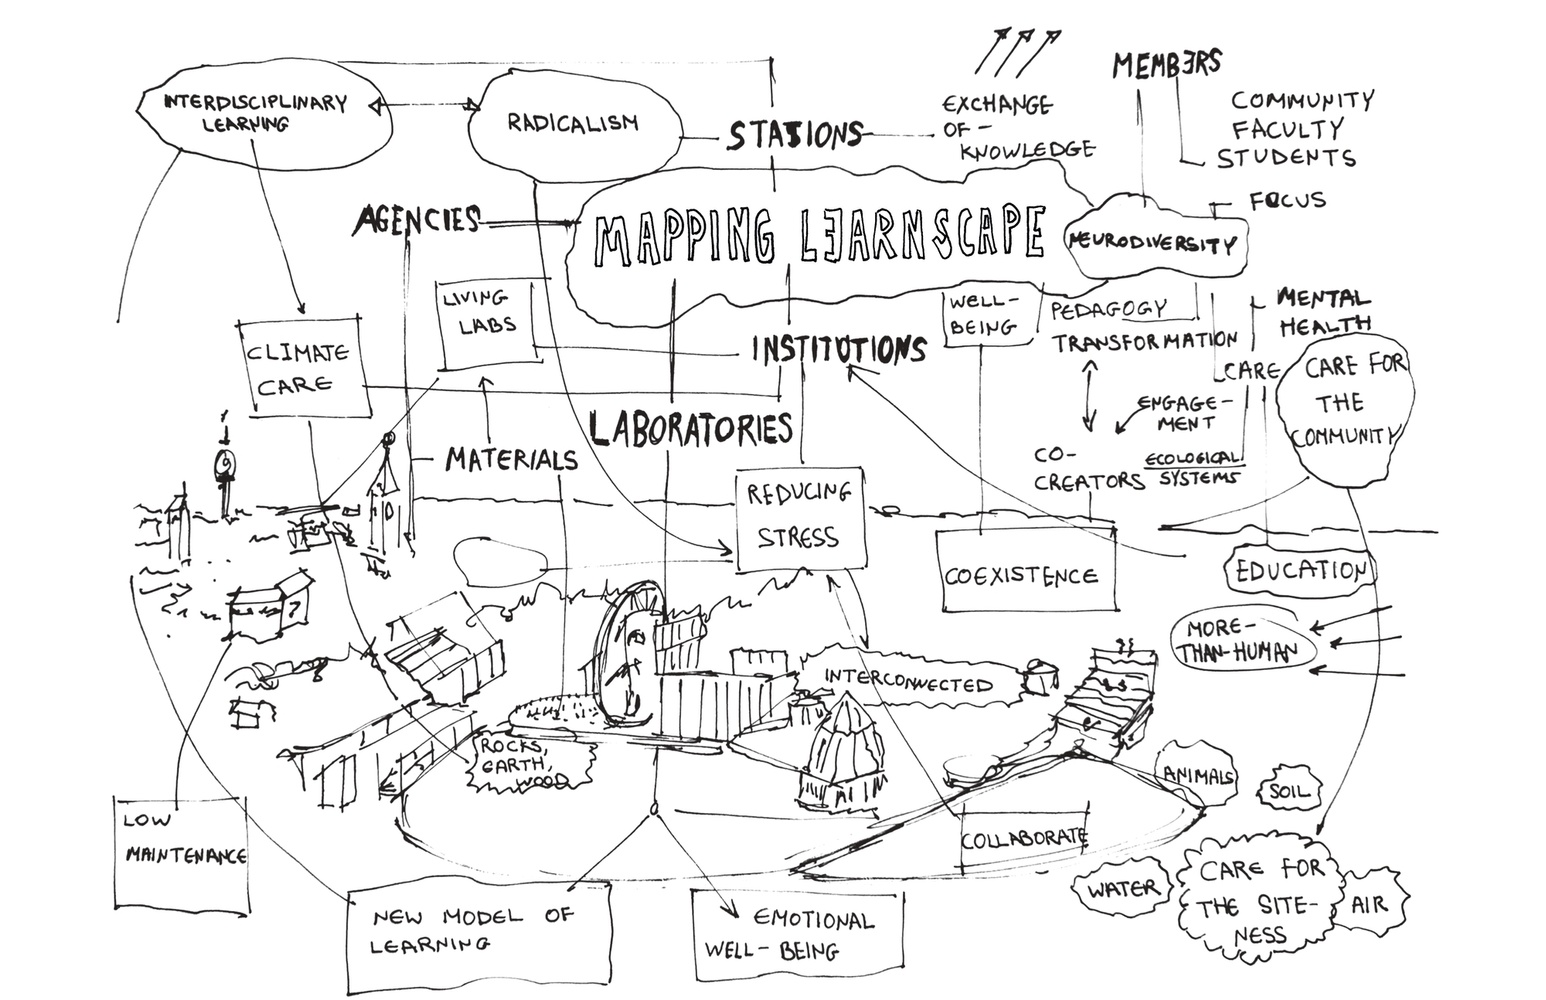 INTERDISCIPLINARY
LEARNING
RADICALISM
STATIONS
EXCHANGE
OF -
KNOWLEDGE
MEMBERS
COMMUNITY
FACULTY
STUDENTS
FOCUS
AGENCIES
MAPPING LEARNSCAPE
NEURODIVERSITY
LIVING
LABS
WELL-
BEING
PEDAGOGY
TRANSFORMATION
MENTAL
HEALTH
CLIMATE
CARE
INSTITUTIONS
CARE
CARE FOR
THE
COMMUNITY
ENGAGE-
MENT
LABORATORIES
MATERIALS
CO-
CREATORS
ECOLOGICAL
SYSTEMS
REDUCING
STRESS
COEXISTENCE
EDUCATION
MORE-
THAN-HUMAN
INTERCONNECTED
ROCKS,
EARTH,
WOOD
ANIMALS
SOIL
LOW
MAINTENANCE
COLLABORATE
WATER
CARE FOR
THE SITE-
NESS
AIR
NEW MODEL OF
LEARNING
EMOTIONAL
WELL-BEING